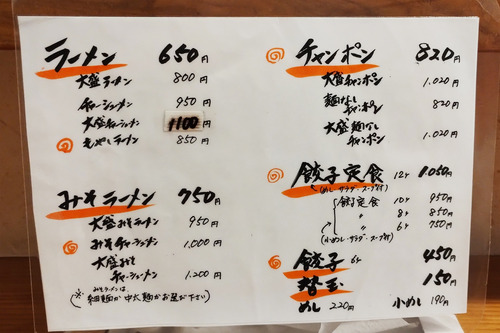 ラーメン 650円
大盛ラーメン 800円
チャーシューメン 950円
大盛チャーシューメン 1100円
もやしラーメン 850円
みそラーメン 750円
大盛みそラーメン 950円
みそチャーシューメン 1,000円
大盛みそ
チャーシューメン 1,200円
みそラーメンは、
(※細麺か中太麺かお選び下さい)
チャンポン 820円
大盛チャンポン 1,020円
麺なし
チャンポン 820円
大盛麺なし
チャンポン 1,020円
餃子定食 12ケ 1,050円
(めし・サラダ・スープ付)
餃子定食 10ケ 950円
〃 8ケ 850円
〃 6ケ 750円
(小めし・サラダ・スープ付)
餃子 6ケ 450円
替玉 150円
めし 220円 小めし 190円